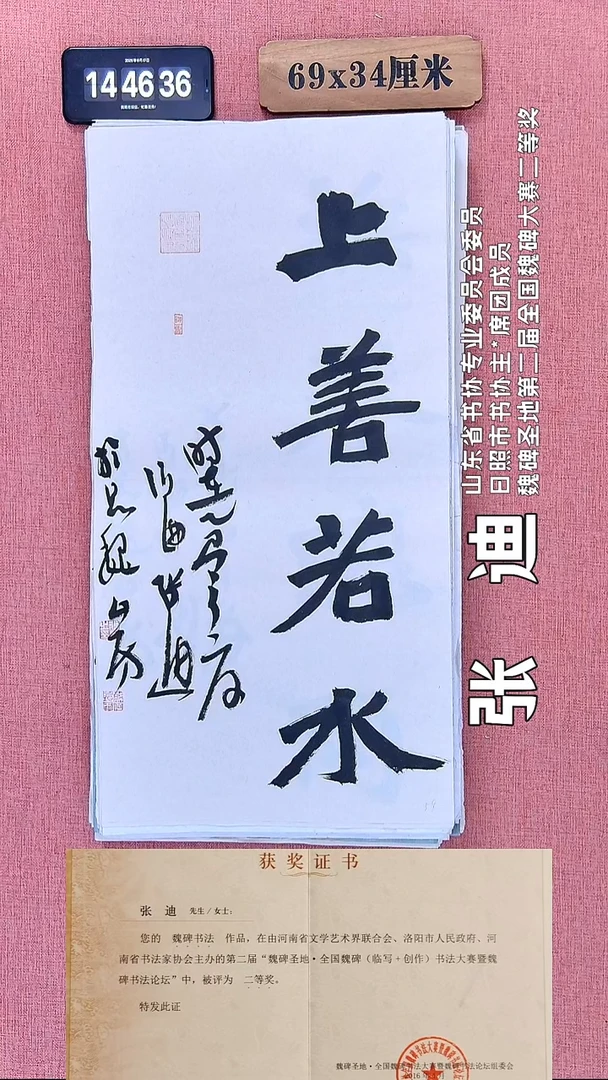 14 46 36
69x34厘米
上善若水
山东省书协专业委员会委员
日照市书协主*席团成员
魏碑圣地第二届全国魏碑大赛二等奖
张 迪
获奖证书
张 迪 先生/女士:
您的 魏碑书法 作品,在由河南省文学艺术界联合会、洛阳市人民政府、河
南省书法家协会主办的第二届“魏碑圣地·全国魏碑(临写+创作)书法大赛暨魏
碑书法论坛”中,被评为 二等奖。
特发此证
魏碑圣地·全国魏碑书法大赛暨魏碑书法论坛组委会